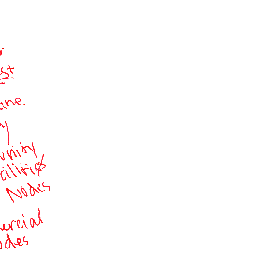 st
ane.
y
unity
cilities
Nodes
ercial
odes